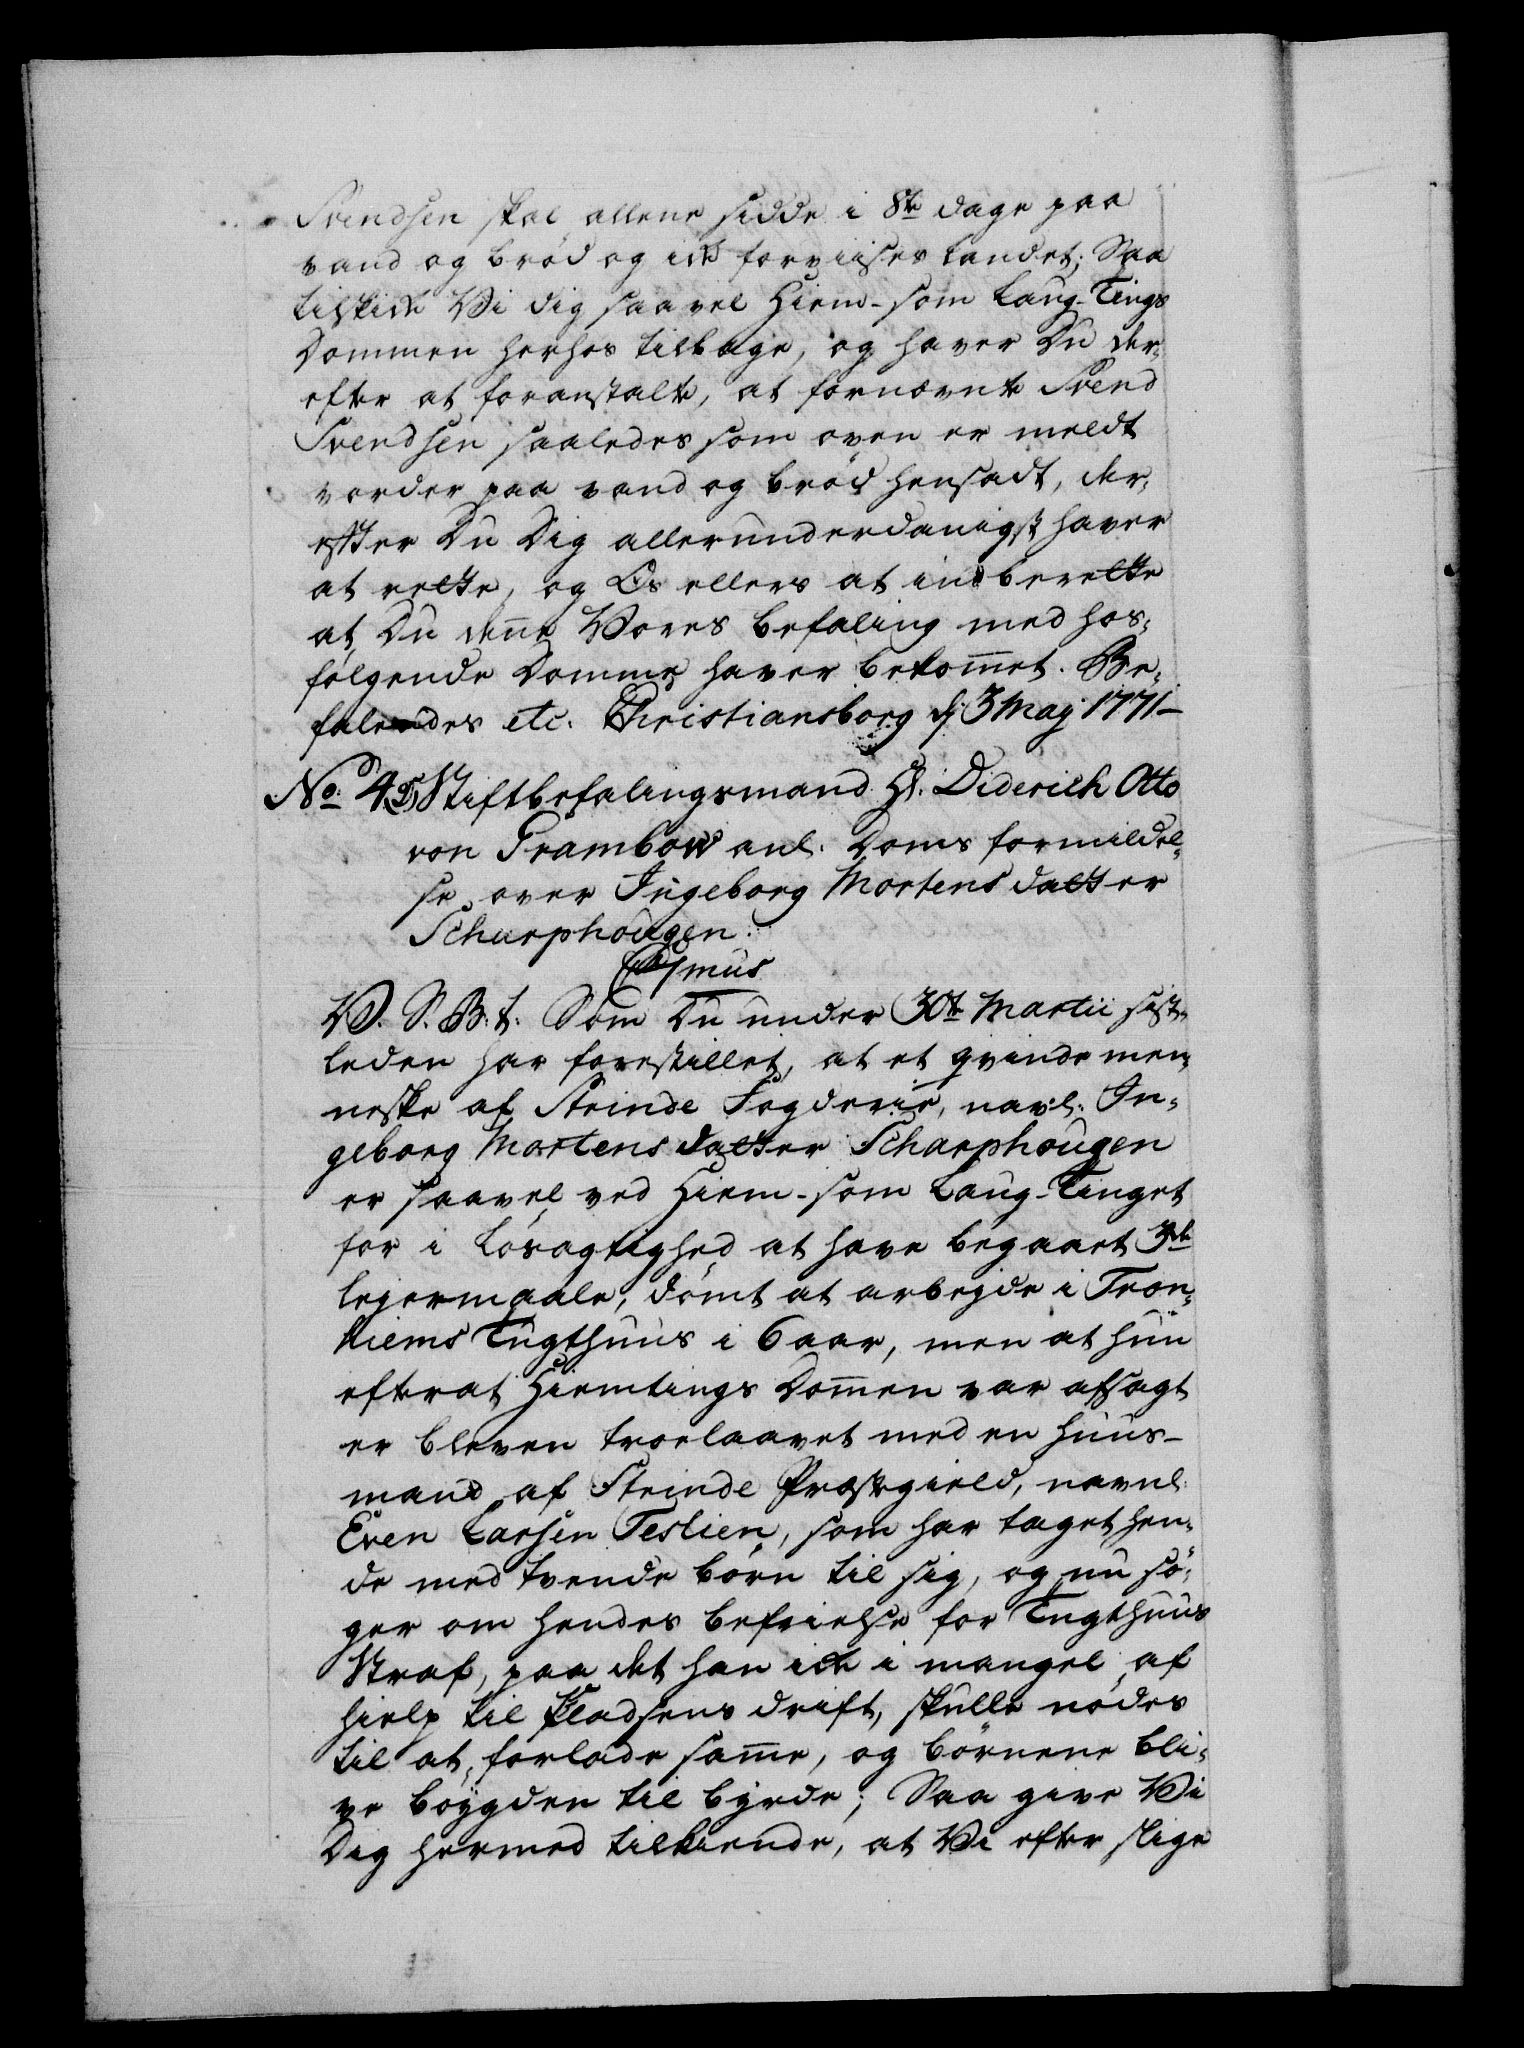 Svendsen skal allene sidde i 8te dage paa
vand og brød og ick forviises landet; Saa
tilskicke Vi dig saavel Hiem- som Laug-Tings
Dommen herhos tilbage, og haver Du der,
efter at foranstalte, at fornævnte Svend
Svendsen saaledes som oven er meldt
vorder paa vand og brød hensadt, der,
efter Du Dig allerunderdanigst haver
at rette, og Os ellers at indberette
at Du deñe Vores befaling med hos,
følgende Domme haver bekom̄et. Be,
falendes etc. Christiansborg d. 3 Maj 1771-
No. 45 Stiftbefalingsmand Hr. Diderich Otto
von Grambow anl. Doms formildel,
se over Ingeborg Mortens datter
Scharphougen.
C7mus
V. S. B. t. Som Du under 30te Martii sist,
leden har forestillet, at et qvindemen,
neske af Strinde Fogderie, navl. In,
geborg Mortens datter Scharphougen
er saavel ved Hiem- som Laug-Tinget
for i løsagtighed at have begaaet 3de
lejermaale, dømt at arbejde i Tron,
hiems Tugthuus i 6 aar, men at hun
efterat Hiemtings Dom̄en var afsagt
er bleven troelaavet med en huus-
mand af Strinde Præstegield, navnl.
Even Larsen Teslien, som har taget hen,
de med tvende børn til sig, og nu sø,
ger om hendes befrielse for Tugthuus
Straf, paa det han icke i mangel af
hielp til Pladsens drift, skulle nødes
til at forlade sam̄e, og børnene bli,
ve bøygden til byrde; Saa give Vi
Dig hermed tilkiende, at Vi efter slige